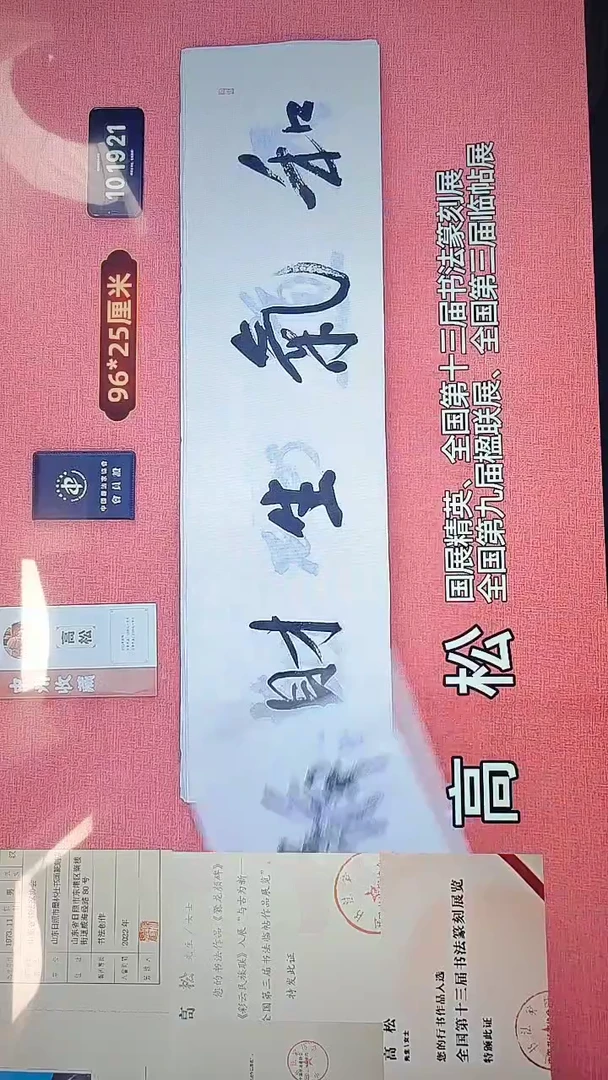 和氣生財
10 19 21
96*25厘米
中国书法家协会
會員證
高松
收藏
高 松
国展精英、全国第十三届书法篆刻展
全国第九届楹联展、全国第三届临帖展
山东省日照市东港区
80号
书法创作
2022年
高 松 先生/女士
您的书法作品
入展“与古为新
全国第三届书法临帖作品展览”。
特发此证
高 松
先生\女士
您的行书作品入选
全国第十三届书法篆刻展览
特颁此证